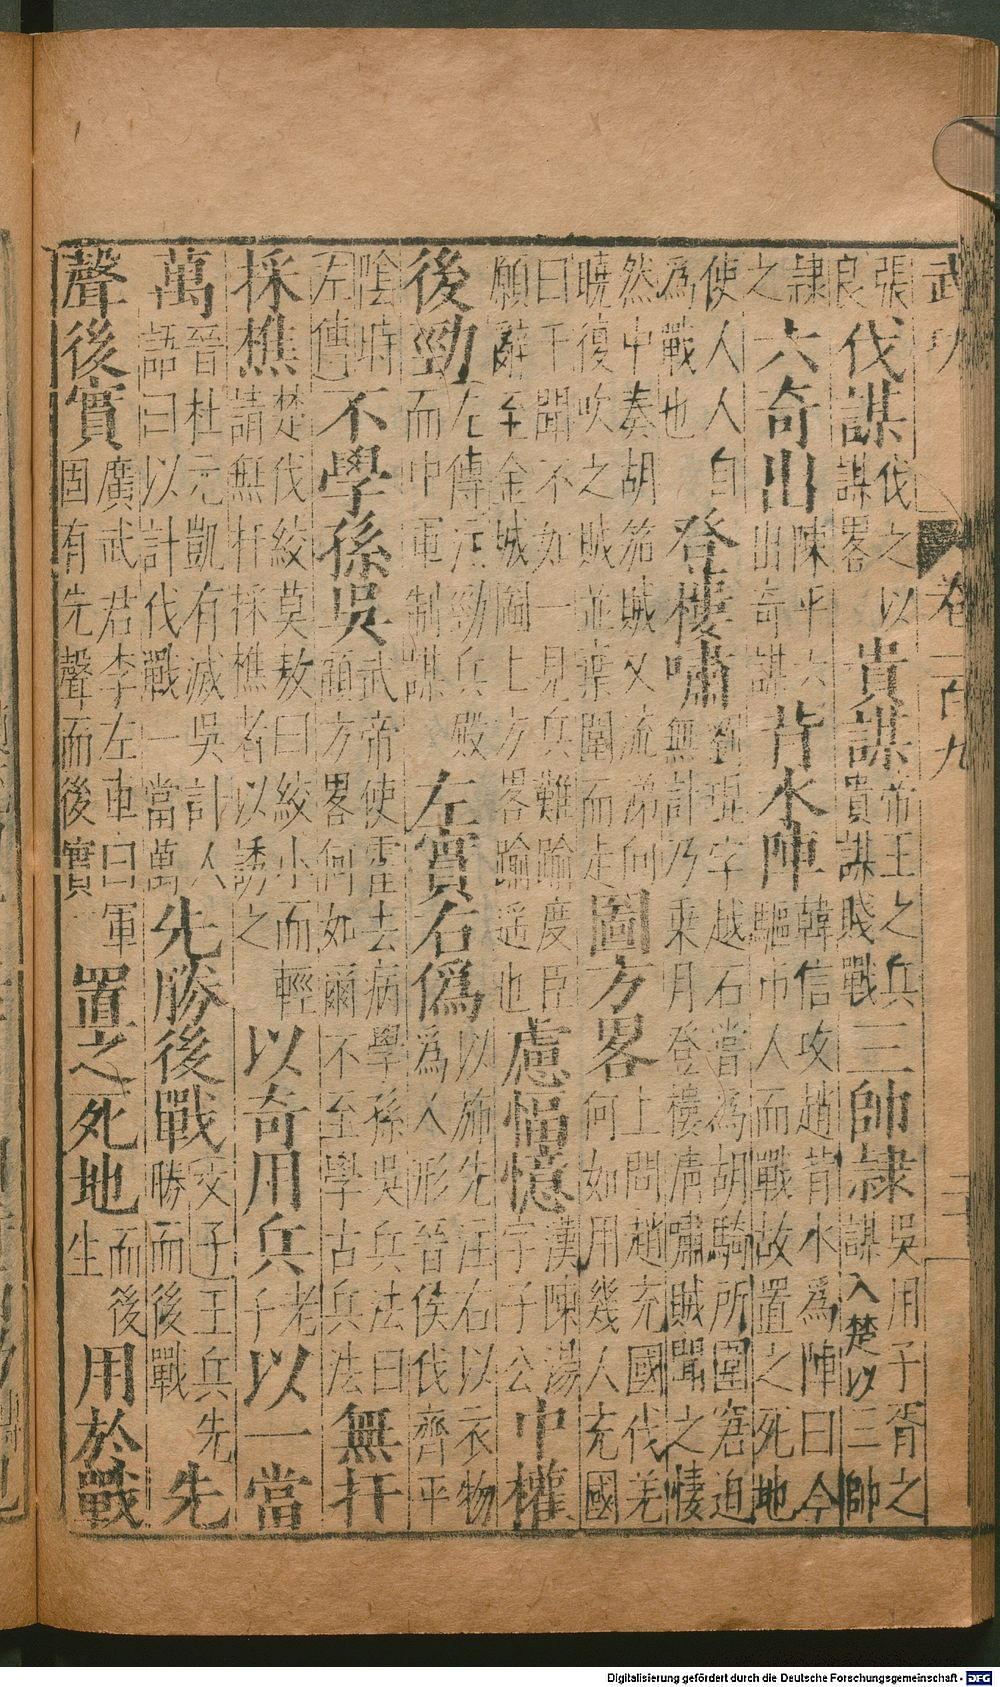 武功 卷一百九 三
張良伐謀伐之以謀畧貴謀帝王之兵貴謀賤戰三帥隸吳用子胥之謀入楚以三帥
隸之六奇出陳平六出奇謀背水陣韓信攻趙背水為陣曰今驅市人而戰故置之死地
使人人自為戰也登樓嘯劉琨字越石嘗為胡騎所圍窘迫無計乃乘月登樓清嘯賊聞之悽
然中奏胡笳賊又流涕向曉復吹之賊並棄圍而走圖方畧上問趙充國伐羌何如用幾人充國
曰千聞不如一見兵難踰度臣願辭至金城圖上方畧踰遥也慮愊憶漢陳湯字子公中權
後勁左傳云勁兵殿而中軍制謀左實右偽以旆先注右以衣物為人形晉侯伐齊平
陰時左傳不學孫吳武帝使霍去病學孫吳兵法曰顧方畧何如爾不至學古兵法無扞
採樵楚伐絞莫敖曰絞小而輕請無扞採樵者以誘之以奇用兵老子以一當
萬晉杜元凱有滅吳計人語曰以計代戰一當萬先勝後戰文子王兵先勝而後戰先
聲後實廣武君李左車曰軍固有先聲而後實置之死地而後生用於戰
Digitalisierung gefördert durch die Deutsche Forschungsgemeinschaft - DFG